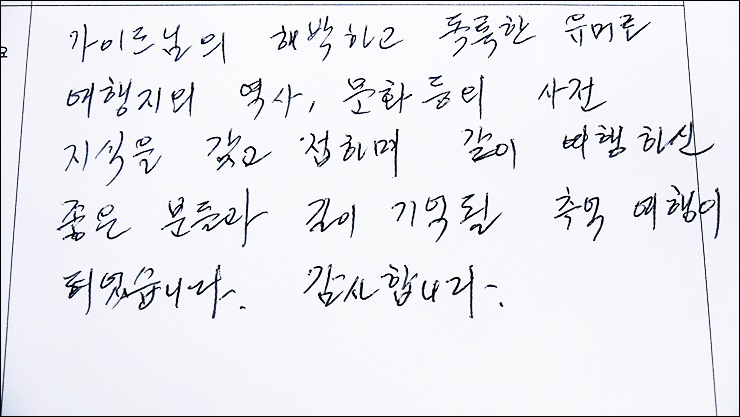 가이드님의 해박하고 독특한 유머로
여행지의 역사, 문화 등의 사전
지식을 갖고 접하며 같이 여행하신
좋은 분들과 길이 기억될 추억 여행이
되었습니다. 감사합니다.
요